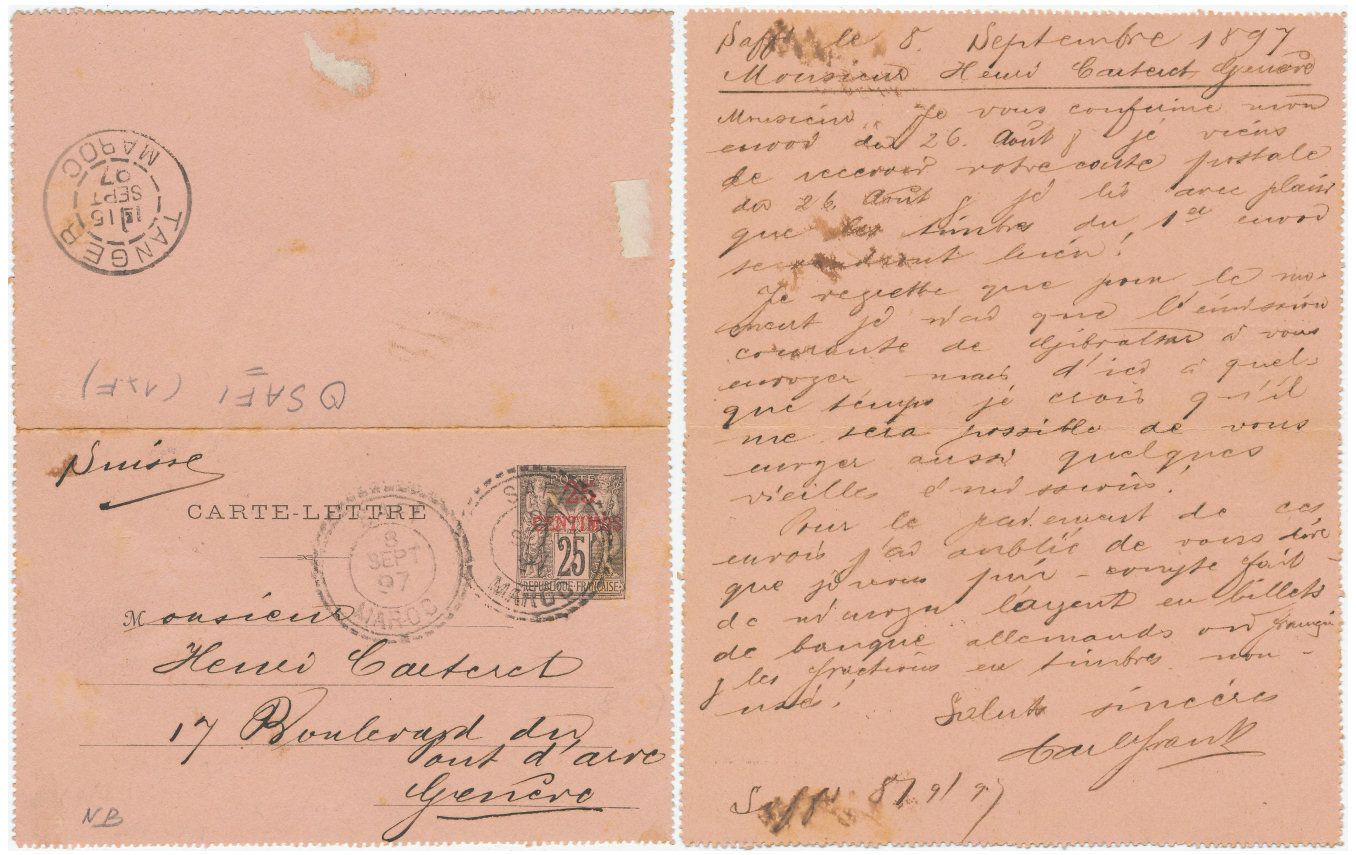 TANGER
15
SEPT
97
MAROC
SAFI (1xF)
Suisse
CARTE-LETTRE
25
CENTIMOS
25
REPUBLIQUE FRANÇAISE
MAROC
8
SEPT
97
MAROC
Monsieur
Henri Carteret
17 Boulevard du
Pont d'arve
Genève
NB
Saffi le 8. Septembre 1897
Monsieur Henri Carteret Genève
Monsieur. Je vous confirme mon
envoi du 26. Août & je viens
de recevoir votre carte postale
du 26 Août & je lis avec plaisir
que les timbres du 1er envoi
bien!
Je regrette que pour le mo-
ment je n'ai que l'émission
courante de Gibraltar à vous
envoyer mais d'ici à quel-
que temps je crois qu'il
me sera possible de vous
envoyer aussi quelques
vieilles émissions.
Pour le paiement de ces
envois j'ai oublié de vous dire
que je vous prie - compte fait -
de m'envoyer l'argent en billets
de banque allemands ou français
& les fractions en timbres non-
usés!
Saluts sincères
Saffi 8/9/97